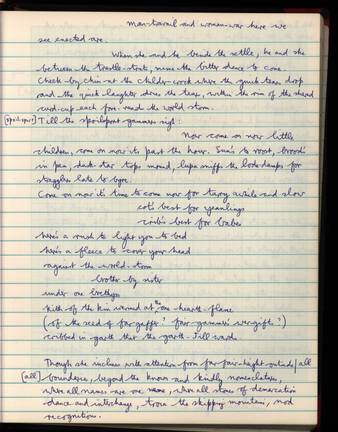 Man-travail and woman-war here we
see enacted are.
When she and he beside the settle, he and she
between the trestle-struts, mime the bitter dance to come.
Cheek by chin at the childer-crock where the quick tears drop
and the quick laughter dries the tears, within the rim of the shared
curd-cup each fore-reads the world-storm.
[spoil-sport] Till the spoilsport gammers sigh:
Now come on now little
children, come on now it's past the hour. Sun's to roost, brood's
in pen, dusk-star tops mound, lupa sniffs the lode-damps for
stragglers late to byre.
Come on now it's time to come now for tarry awhile and slow
cot's best for yeanlings
crib's best for babes
here's a rush to light you to bed
here's a fleece to cover your head
against the world-storm
brother by sister
under one brethyn
kith of the kin warmed at the one hearth-flame
(of the seed of far-gaffer? fair gammer's wer-gifts?)
cribbed in garth that the garth-Jill wards.
Though she inclines with attention from far fair-height outside all
[all] boundaries, beyond the known and kindly nomenclatures,
where all names are one name, where all stones of demarcation
dance and interchange, troia the skipping mountains, nod
recognition.